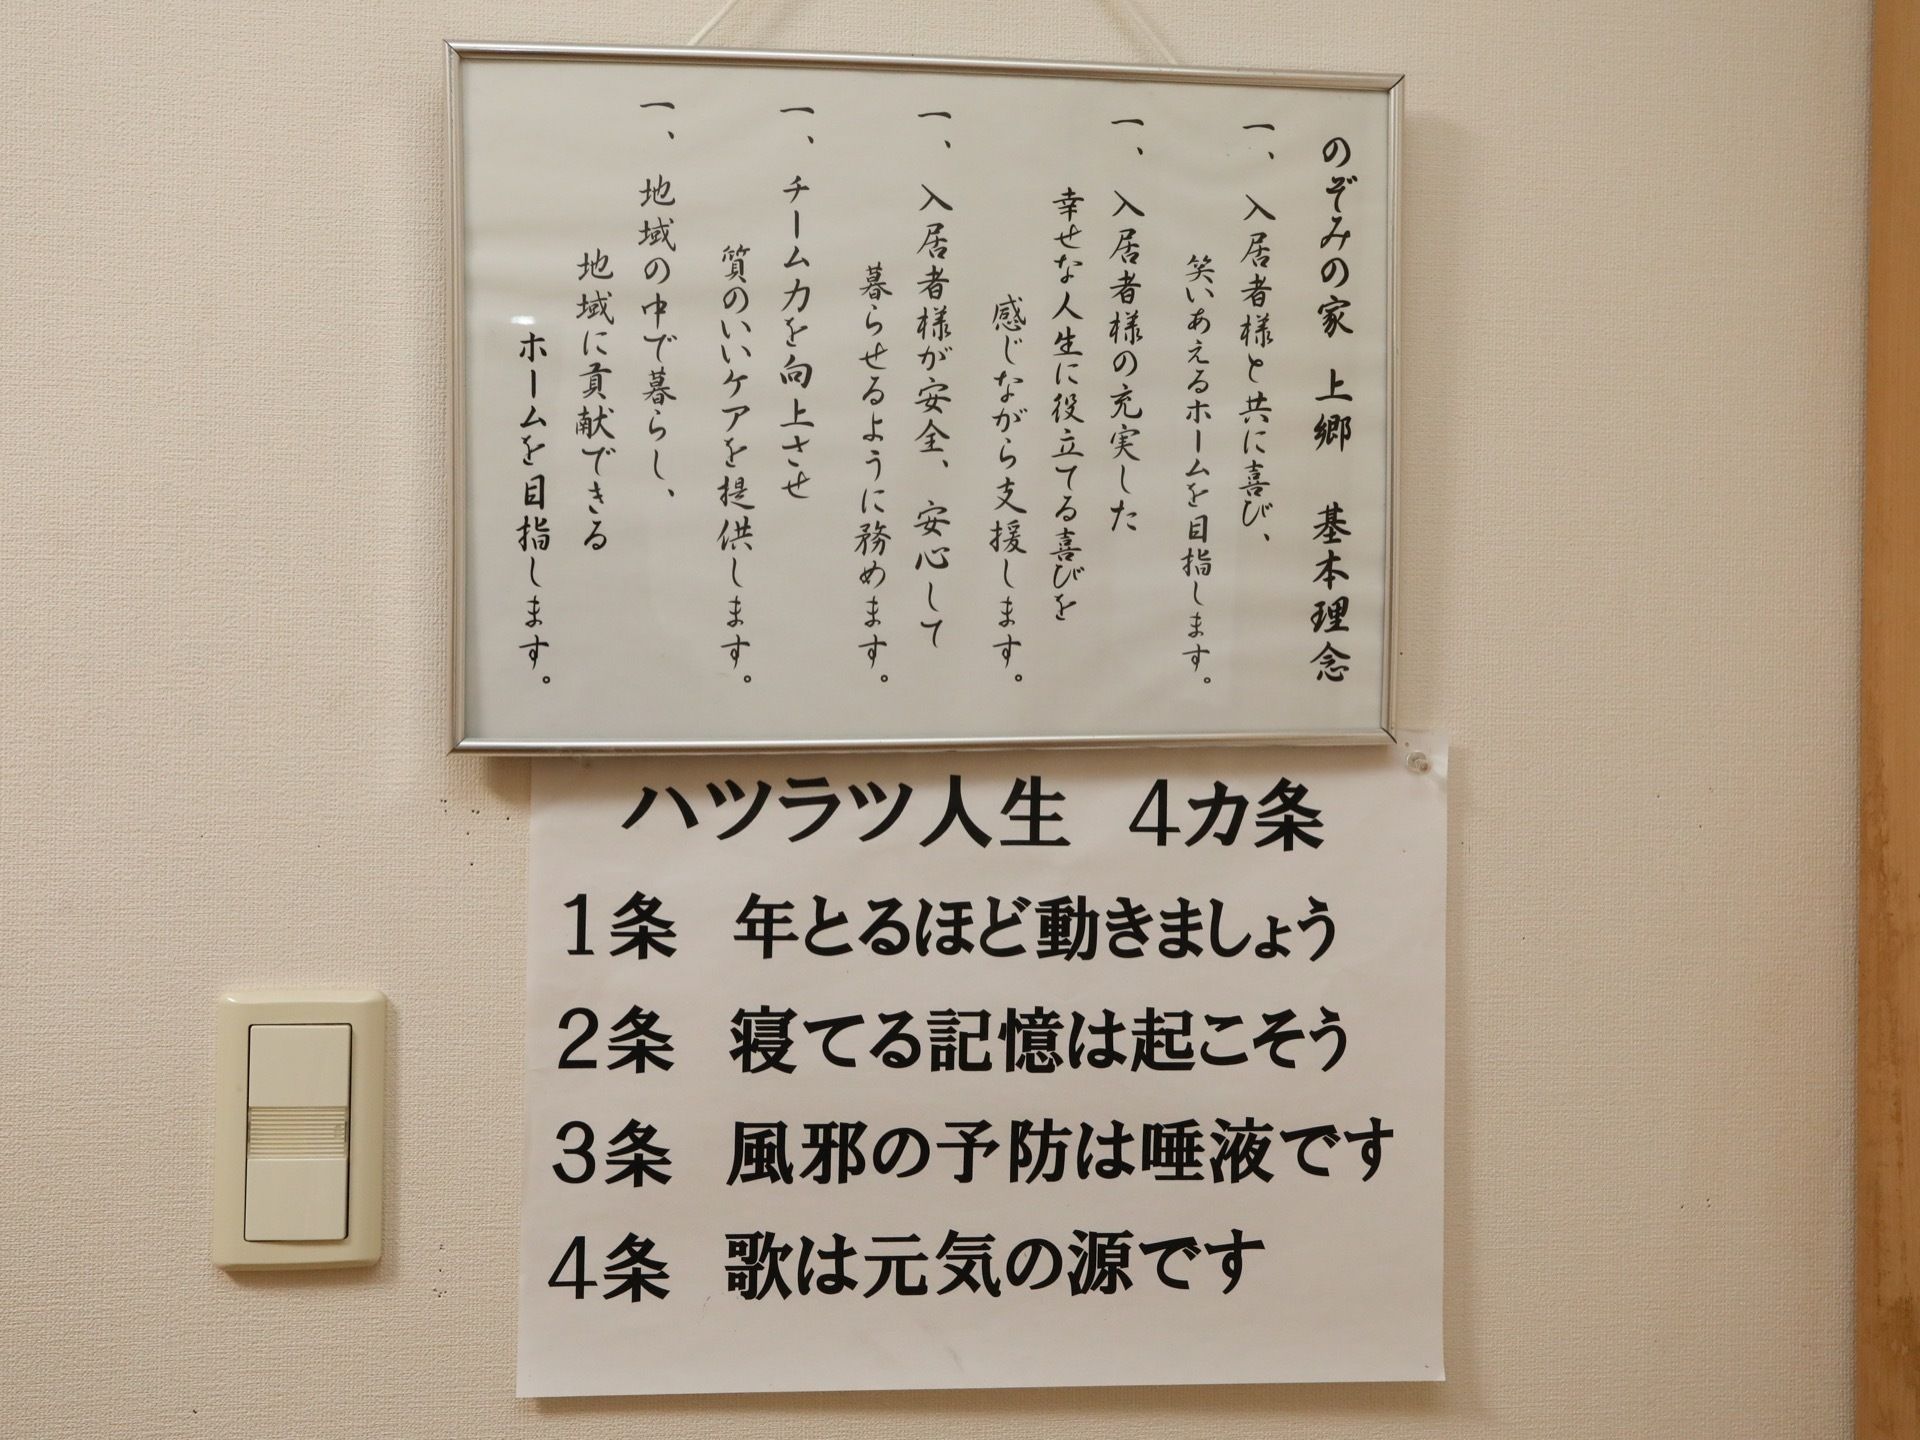 のぞみの家 上郷 基本理念
一、入居者様と共に喜び、
笑いあえるホームを目指します。
一、入居者様の充実した
幸せな人生に役立てる喜びを
感じながら支援します。
一、入居者様が安全、安心して
暮らせるように務めます。
一、チーム力を向上させ
質のいいケアを提供します。
一、地域の中で暮らし、
地域に貢献できる
ホームを目指します。
ハツラツ人生 4カ条
1条 年とるほど動きましょう
2条 寝てる記憶は起こそう
3条 風邪の予防は唾液です
4条 歌は元気の源です